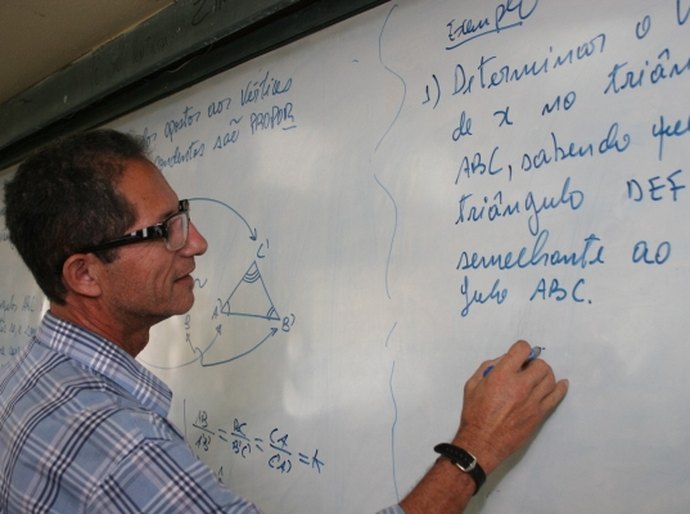 opostos aos vértices
são PROPOR
C'
A'
B'
B
AB/A'B' = BC/B'C' = CA/C'A' = K
Exemplo
1) Determinar o V
de x no triân
ABC, sabendo que
triângulo DEF
semelhante ao
gulo ABC.